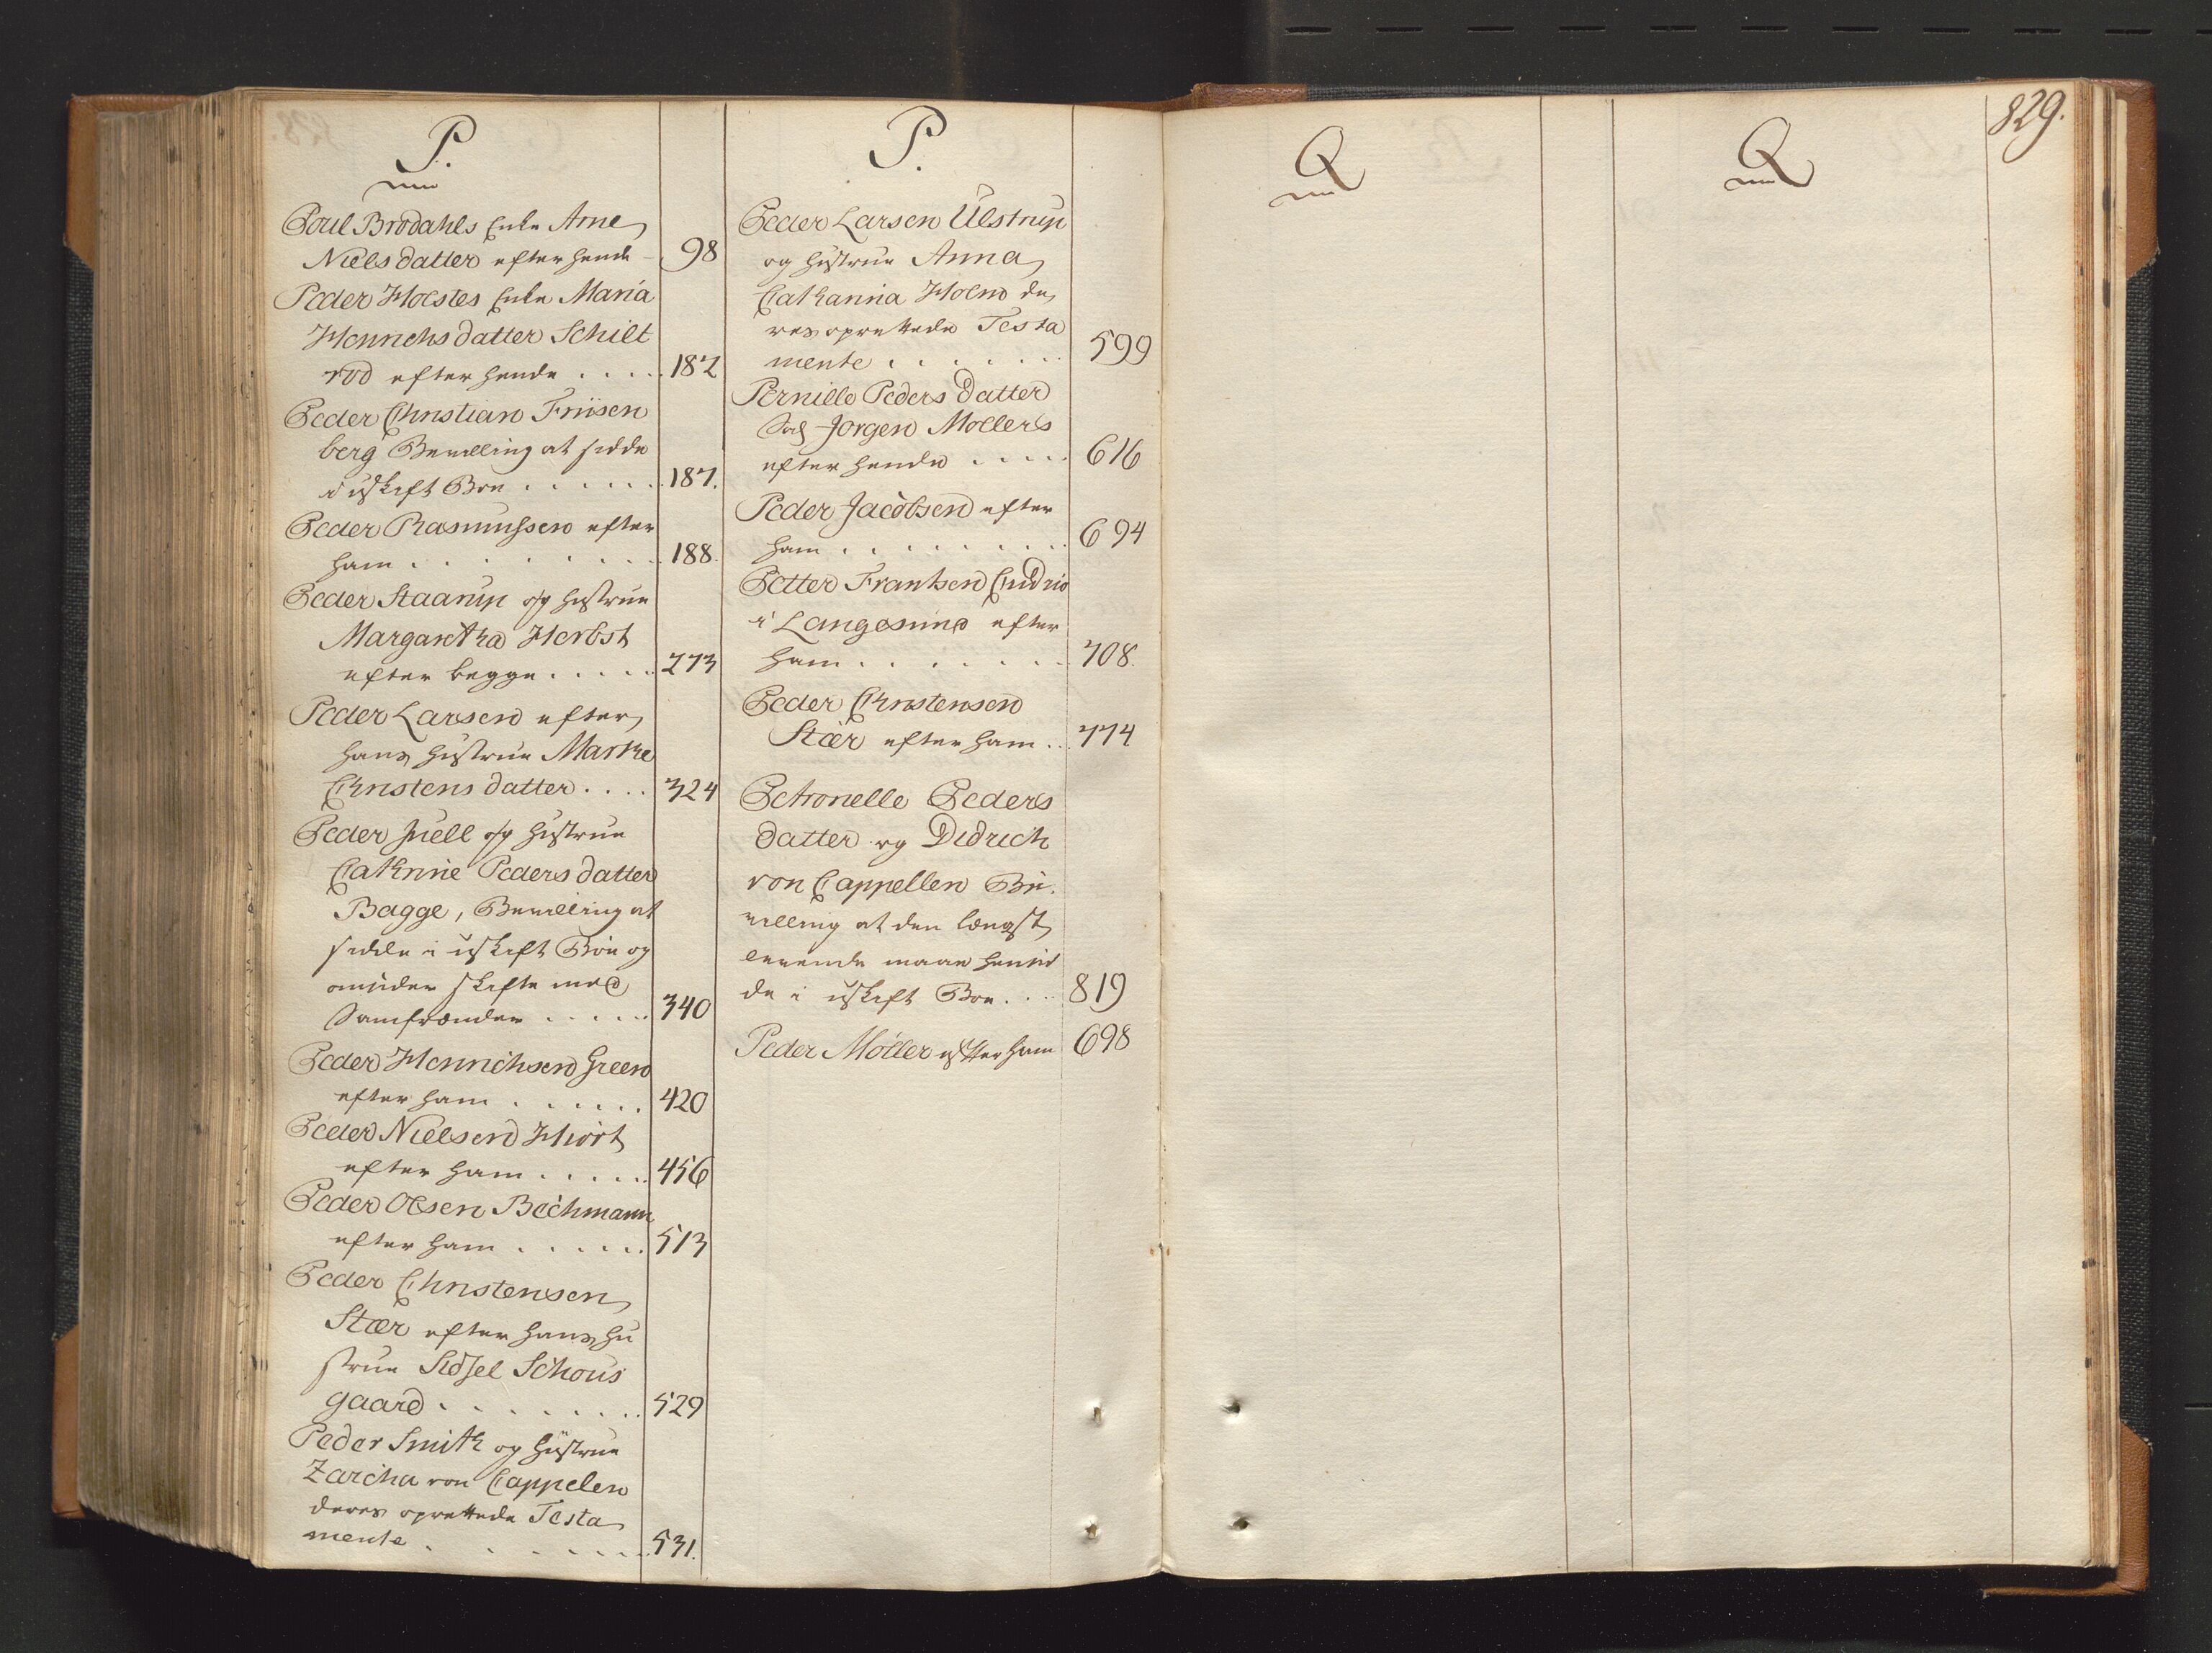 P.
Poul Brodahls Enke Arne
Nielsdatter efter hende 98
Peder Holstes Enke Maria
Henrichsdatter Schilt
rod efter hende . . . . 182
Peder Christian Friisen
berg Bevilling at sidde
i uskift Boe . . . . . . 187.
Peder Rasmussen efter
ham . . . . . . . 188.
Peder Staarup og hustrue
Margaretha Herbst
efter begge . . . . . 273
Peder Larsen efter
hans hustrue Marthe
Christensdatter . . . . 324
Peder Juell og hustrue
Cathrine Pedersdatter
Bagge, Bevilling at
sidde i uskift Boe og
omsider skifte med
Samfrænder . . . . . 340
Peder Henrichsen Green
efter ham . . . . . . 420
Peder Nielsen Hiort
efter ham . . . . . 456
Peder Olsen Bechmann
efter ham . . . . . . 513
Peder Christensen
Stær efter hans hu
strue Sidsel Schous
gaard . . . . . . . . 529
Peder Smith og hustrue
Zarcha von Cappelen
deres oprettede Testa
mente . . . . . . . 531.
P.
Peder Larsen Ulstrup
og hustrue Anna
Catharina Holm de
res oprettede Testa
mente . . . . . . . 599
Pernille Peders Datter
Sal Jorgen Mollers
efter hende . . . . . 616
Peder Jacobsen efter
ham . . . . . . . . . 694
Petter Frantsen
i Langesund efter
ham . . . . . . . . 708.
Peder Christensen
Stær efter ham . . . 774
Petronelle Peders
datter og Didrich
von Cappellen Be
villing at den længst
levende maae hensid
de i uskift Boe . . . . 819
Peder Møller efter ham 698
Q
Q
829.